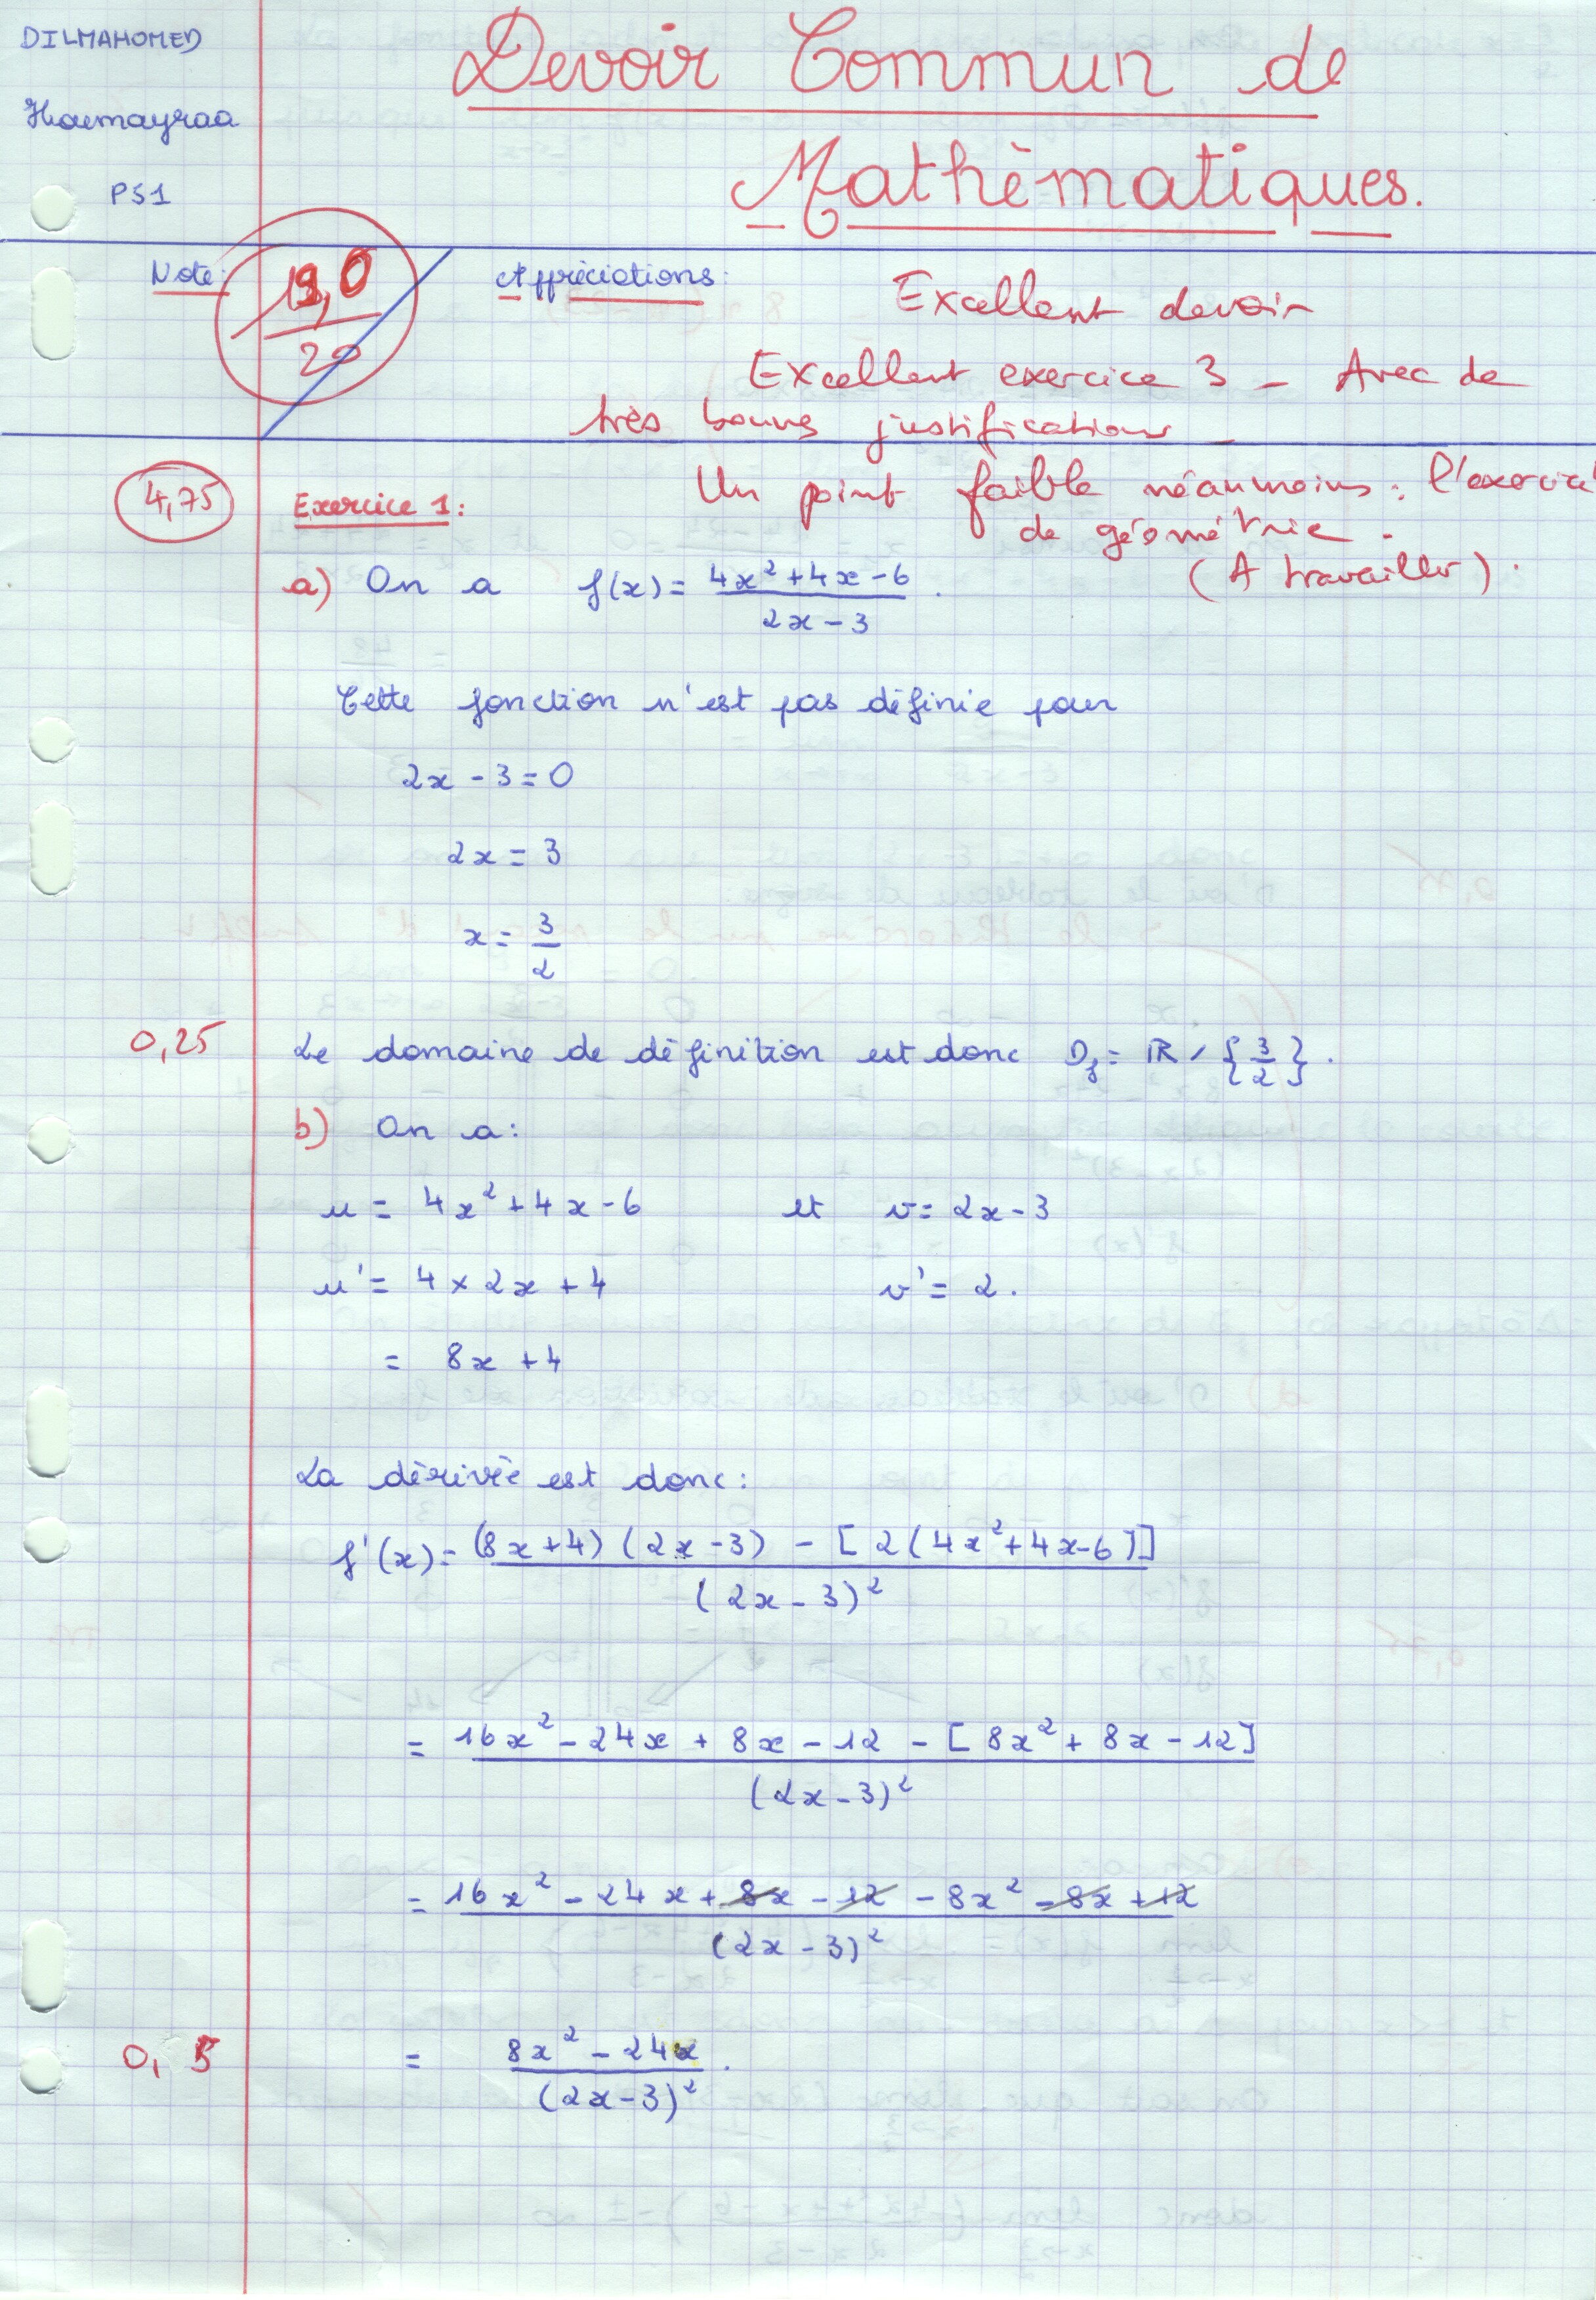 DILMAHOMED
Haemayraa
PS1
Devoir Commun de
Mathèmatiques.
Note:
19,0
20
Appréciations:
Excellent devoir
Excellent exercice 3 - Avec de
très bonnes justifications -
Un point faible néanmoins : l'exercice
de géométrie -
(A travailler).
4,75
Exercice 1:
a) On a f(x) = (4x² + 4x - 6) / (2x - 3).
Cette fonction n'est pas définie pour
2x - 3 = 0
2x = 3
x = 3/2
0,25
Le domaine de définition est donc Df = ℝ / {3/2}.
b) On a:
u = 4x² + 4x - 6 et v = 2x - 3
u' = 4 × 2x + 4 v' = 2.
= 8x + 4
La dérivée est donc:
f'(x) = (8x+4)(2x-3) - [2(4x²+4x-6)] / (2x-3)²
= 16x² - 24x + 8x - 12 - [8x² + 8x - 12] / (2x-3)²
= 16x² - 24x + 8x - 12 - 8x² - 8x + 12 / (2x-3)²
0,5
= 8x² - 24x / (2x-3)².